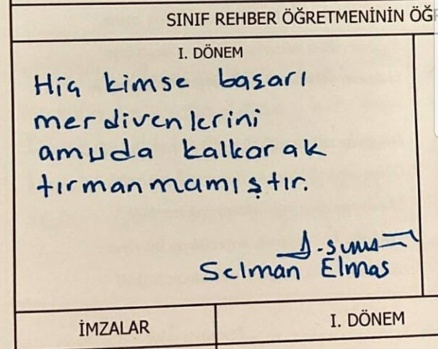 SINIF REHBER ÖĞRETMENİNİN
I. DÖNEM
Hiç kimse başarı
merdivenlerini
amuda kalkarak
tırmanmamıştır.
Selman Elmas
İMZALAR
I. DÖNEM